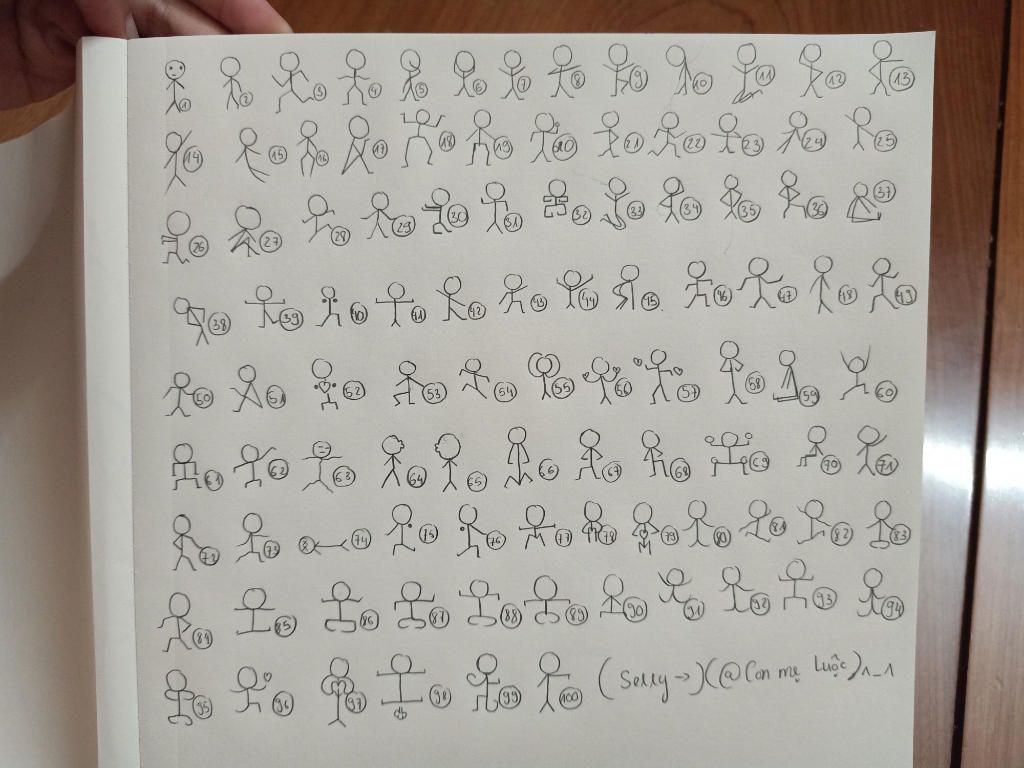 1 2 3 4 5 6 7 8 9 10 11 12 13
14 15 16 17 18 19 20 21 22 23 24 25
26 27 28 29 30 31 32 33 34 35 36 37
38 39 40 41 42 43 44 45 46 47 48 49
50 51 52 53 54 55 56 57 58 59 60
61 62 63 64 65 66 67 68 69 70 71
72 73 74 75 76 77 78 79 80 81 82 83
84 85 86 87 88 89 90 91 92 93 94
95 96 97 98 99 100 (Selly →) (@Con mẹ Luộc) 1_1